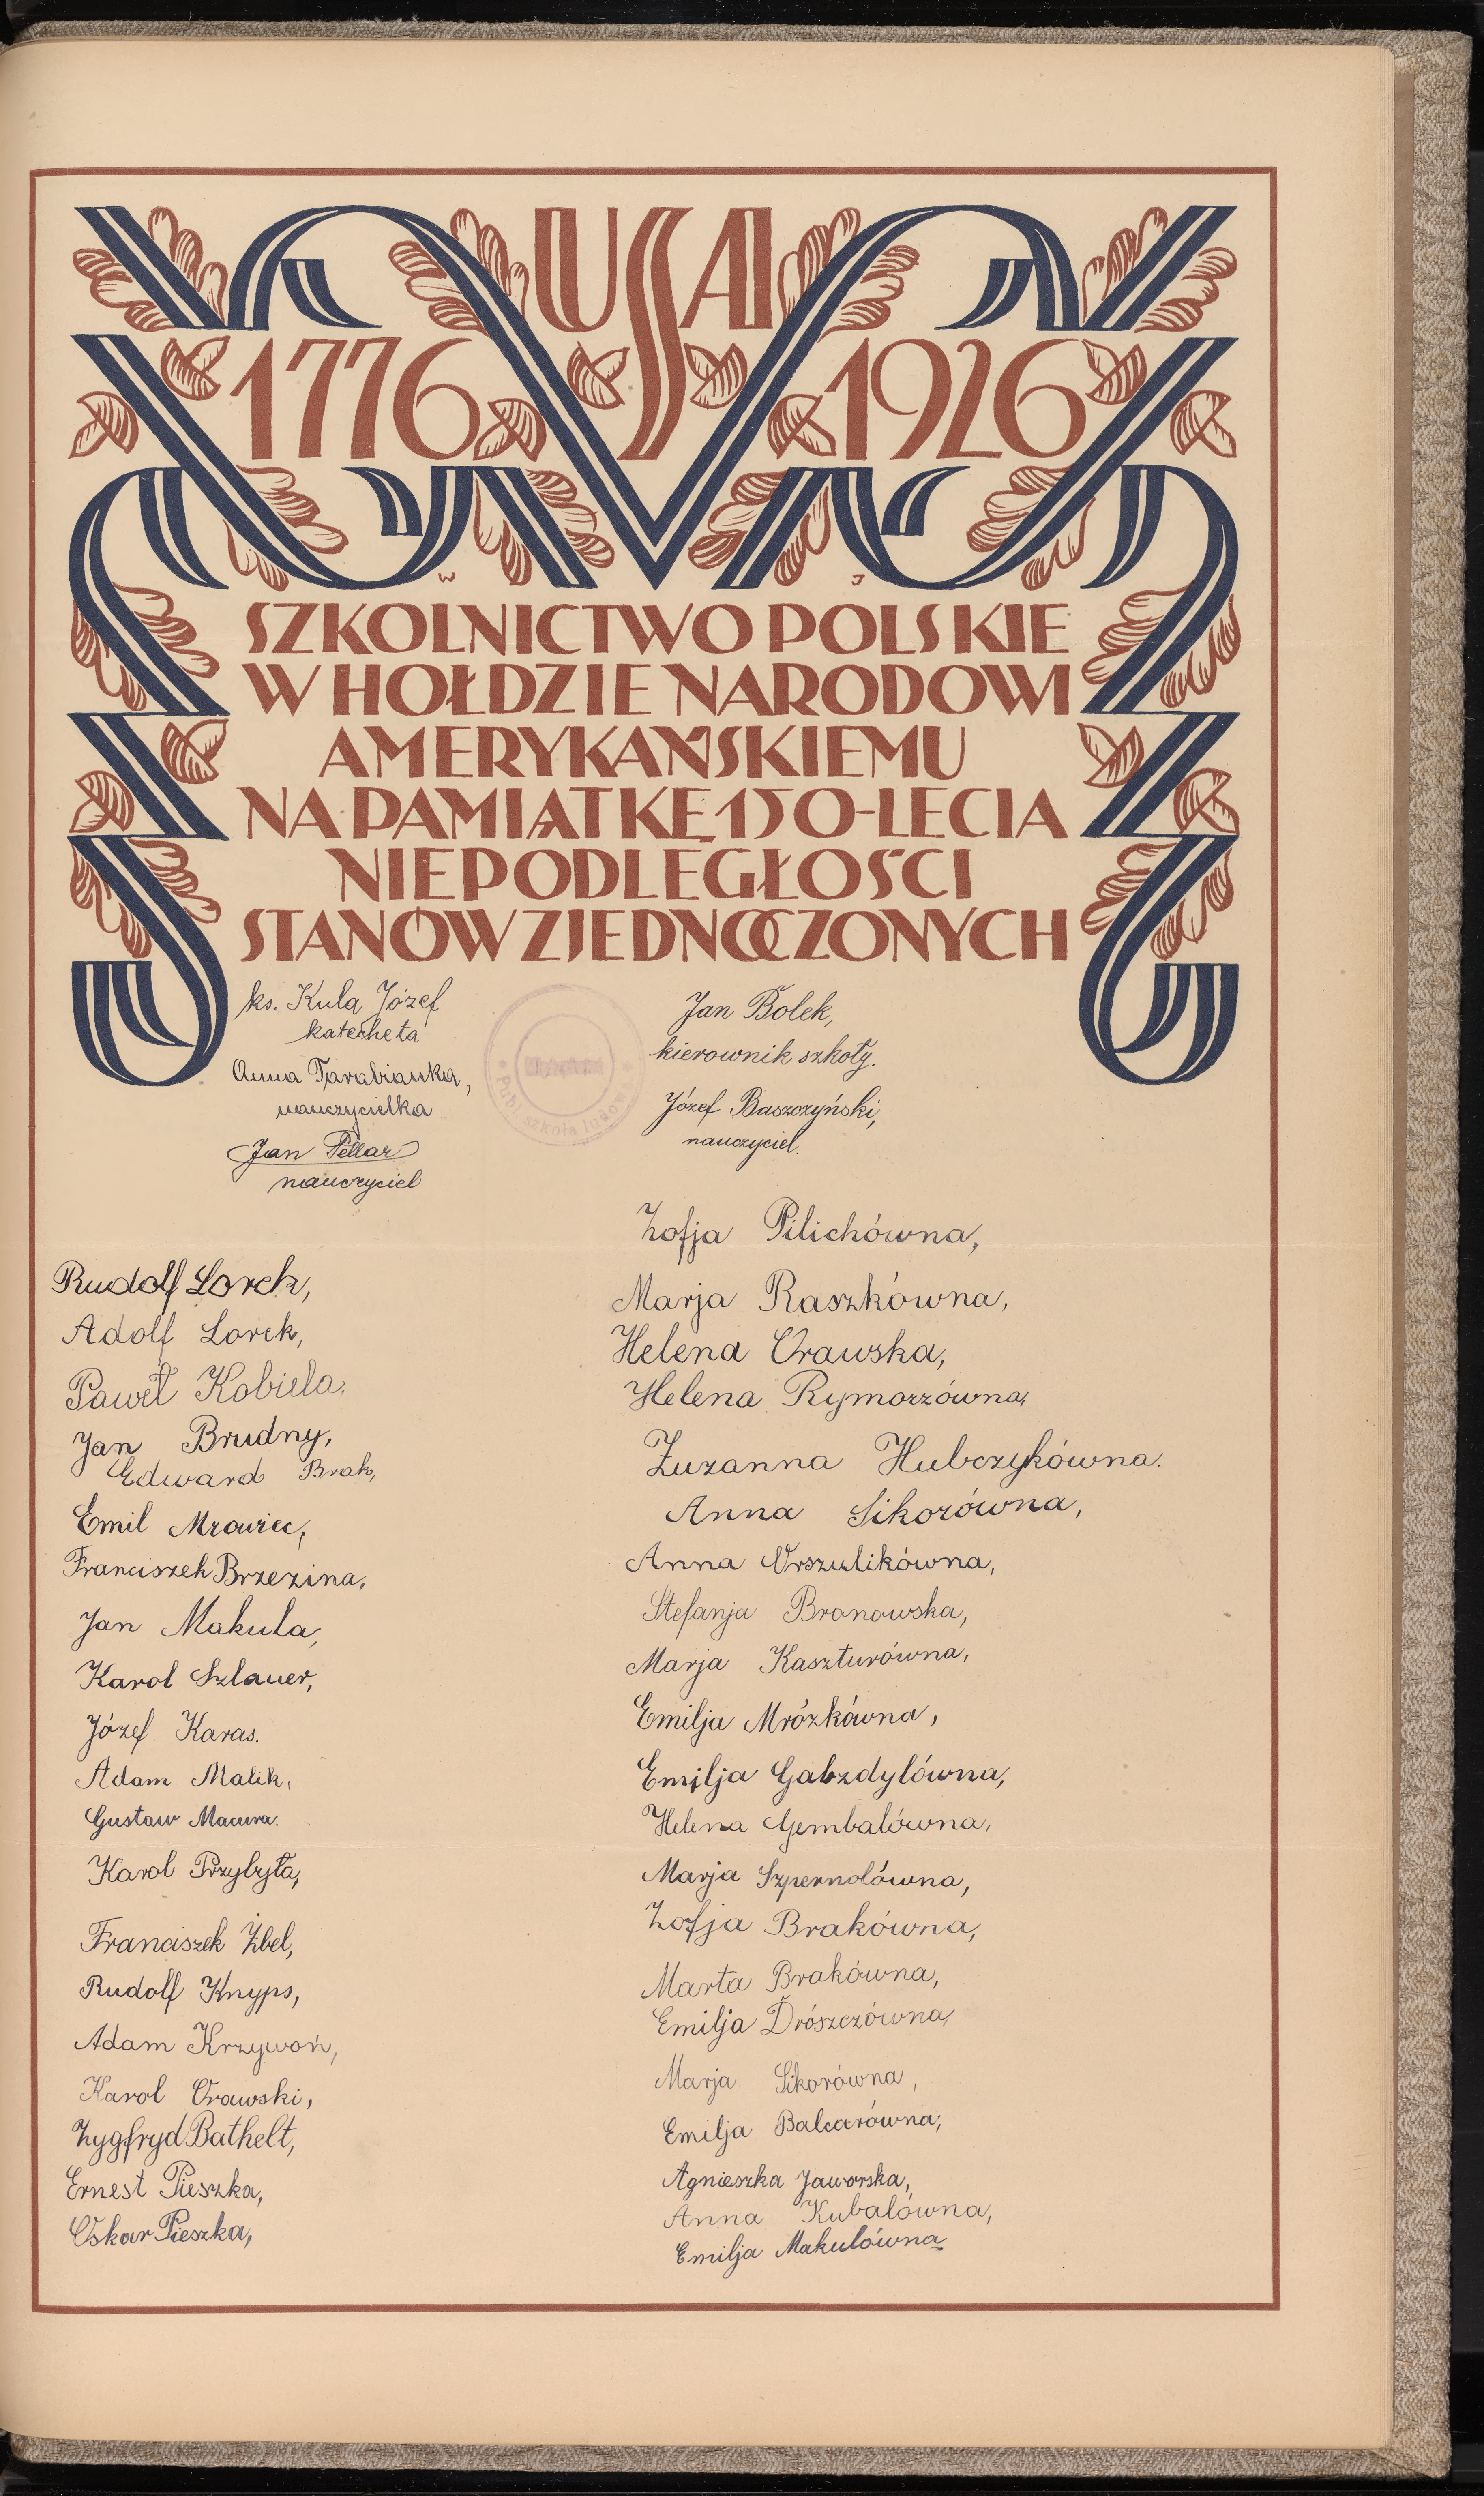 USA
1776 1926
W J
SZKOLNICTWO POLSKIE
W HOŁDZIE NARODOWI
AMERYKAŃSKIEMU
NA PAMIĄTKĘ 150-LECIA
NIEPODLEGŁOŚCI
STANÓW ZJEDNOCZONYCH
ks. Kula Józef
katecheta
Anna Tarabianka,
nauczycielka
Jan Pellar
nauczyciel
Publ. szkoła ludowa
Jan Bolek,
kierownik szkoły.
Józef Baszczyński,
nauczyciel.
Rudolf Lorek,
Adolf Lorek,
Paweł Kobiela,
Jan Brudny,
Edward Brak,
Emil Mrowiec,
Franciszek Brzezina,
Jan Makula,
Karol Szlauer,
Józef Karas.
Adam Malik,
Gustaw Macura.
Karol Przybyła,
Franciszek Żbel,
Rudolf Knyps,
Adam Krzywoń,
Karol Orawski,
Zygfryd Bathelt,
Ernest Pieszka,
Oskar Pieszka,
Zofja Pilichówna,
Marja Raszkówna,
Helena Orawska,
Helena Rymorzówna,
Zuzanna Hubczykówna.
Anna Sikorówna,
Anna Urszulikówna,
Stefanja Bronowska,
Marja Kaszturówna,
Emilja Mrózkówna,
Emilja Gabzdylówna,
Helena Gembalówna,
Marja Szpernolówna,
Zofja Brakówna,
Marta Brakówna,
Emilja Drószczówna,
Marja Sikorówna,
Emilja Balcarówna,
Agnieszka Jaworska,
Anna Kubalówna,
Emilja Makulówna